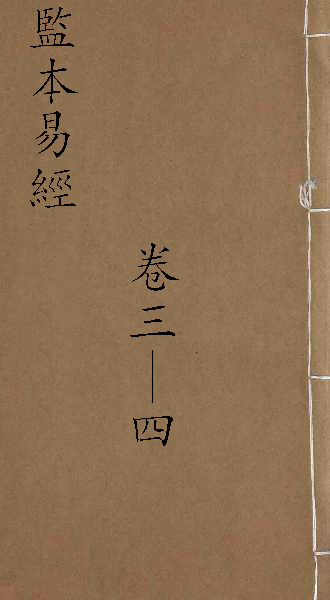 監本易經
卷三—四